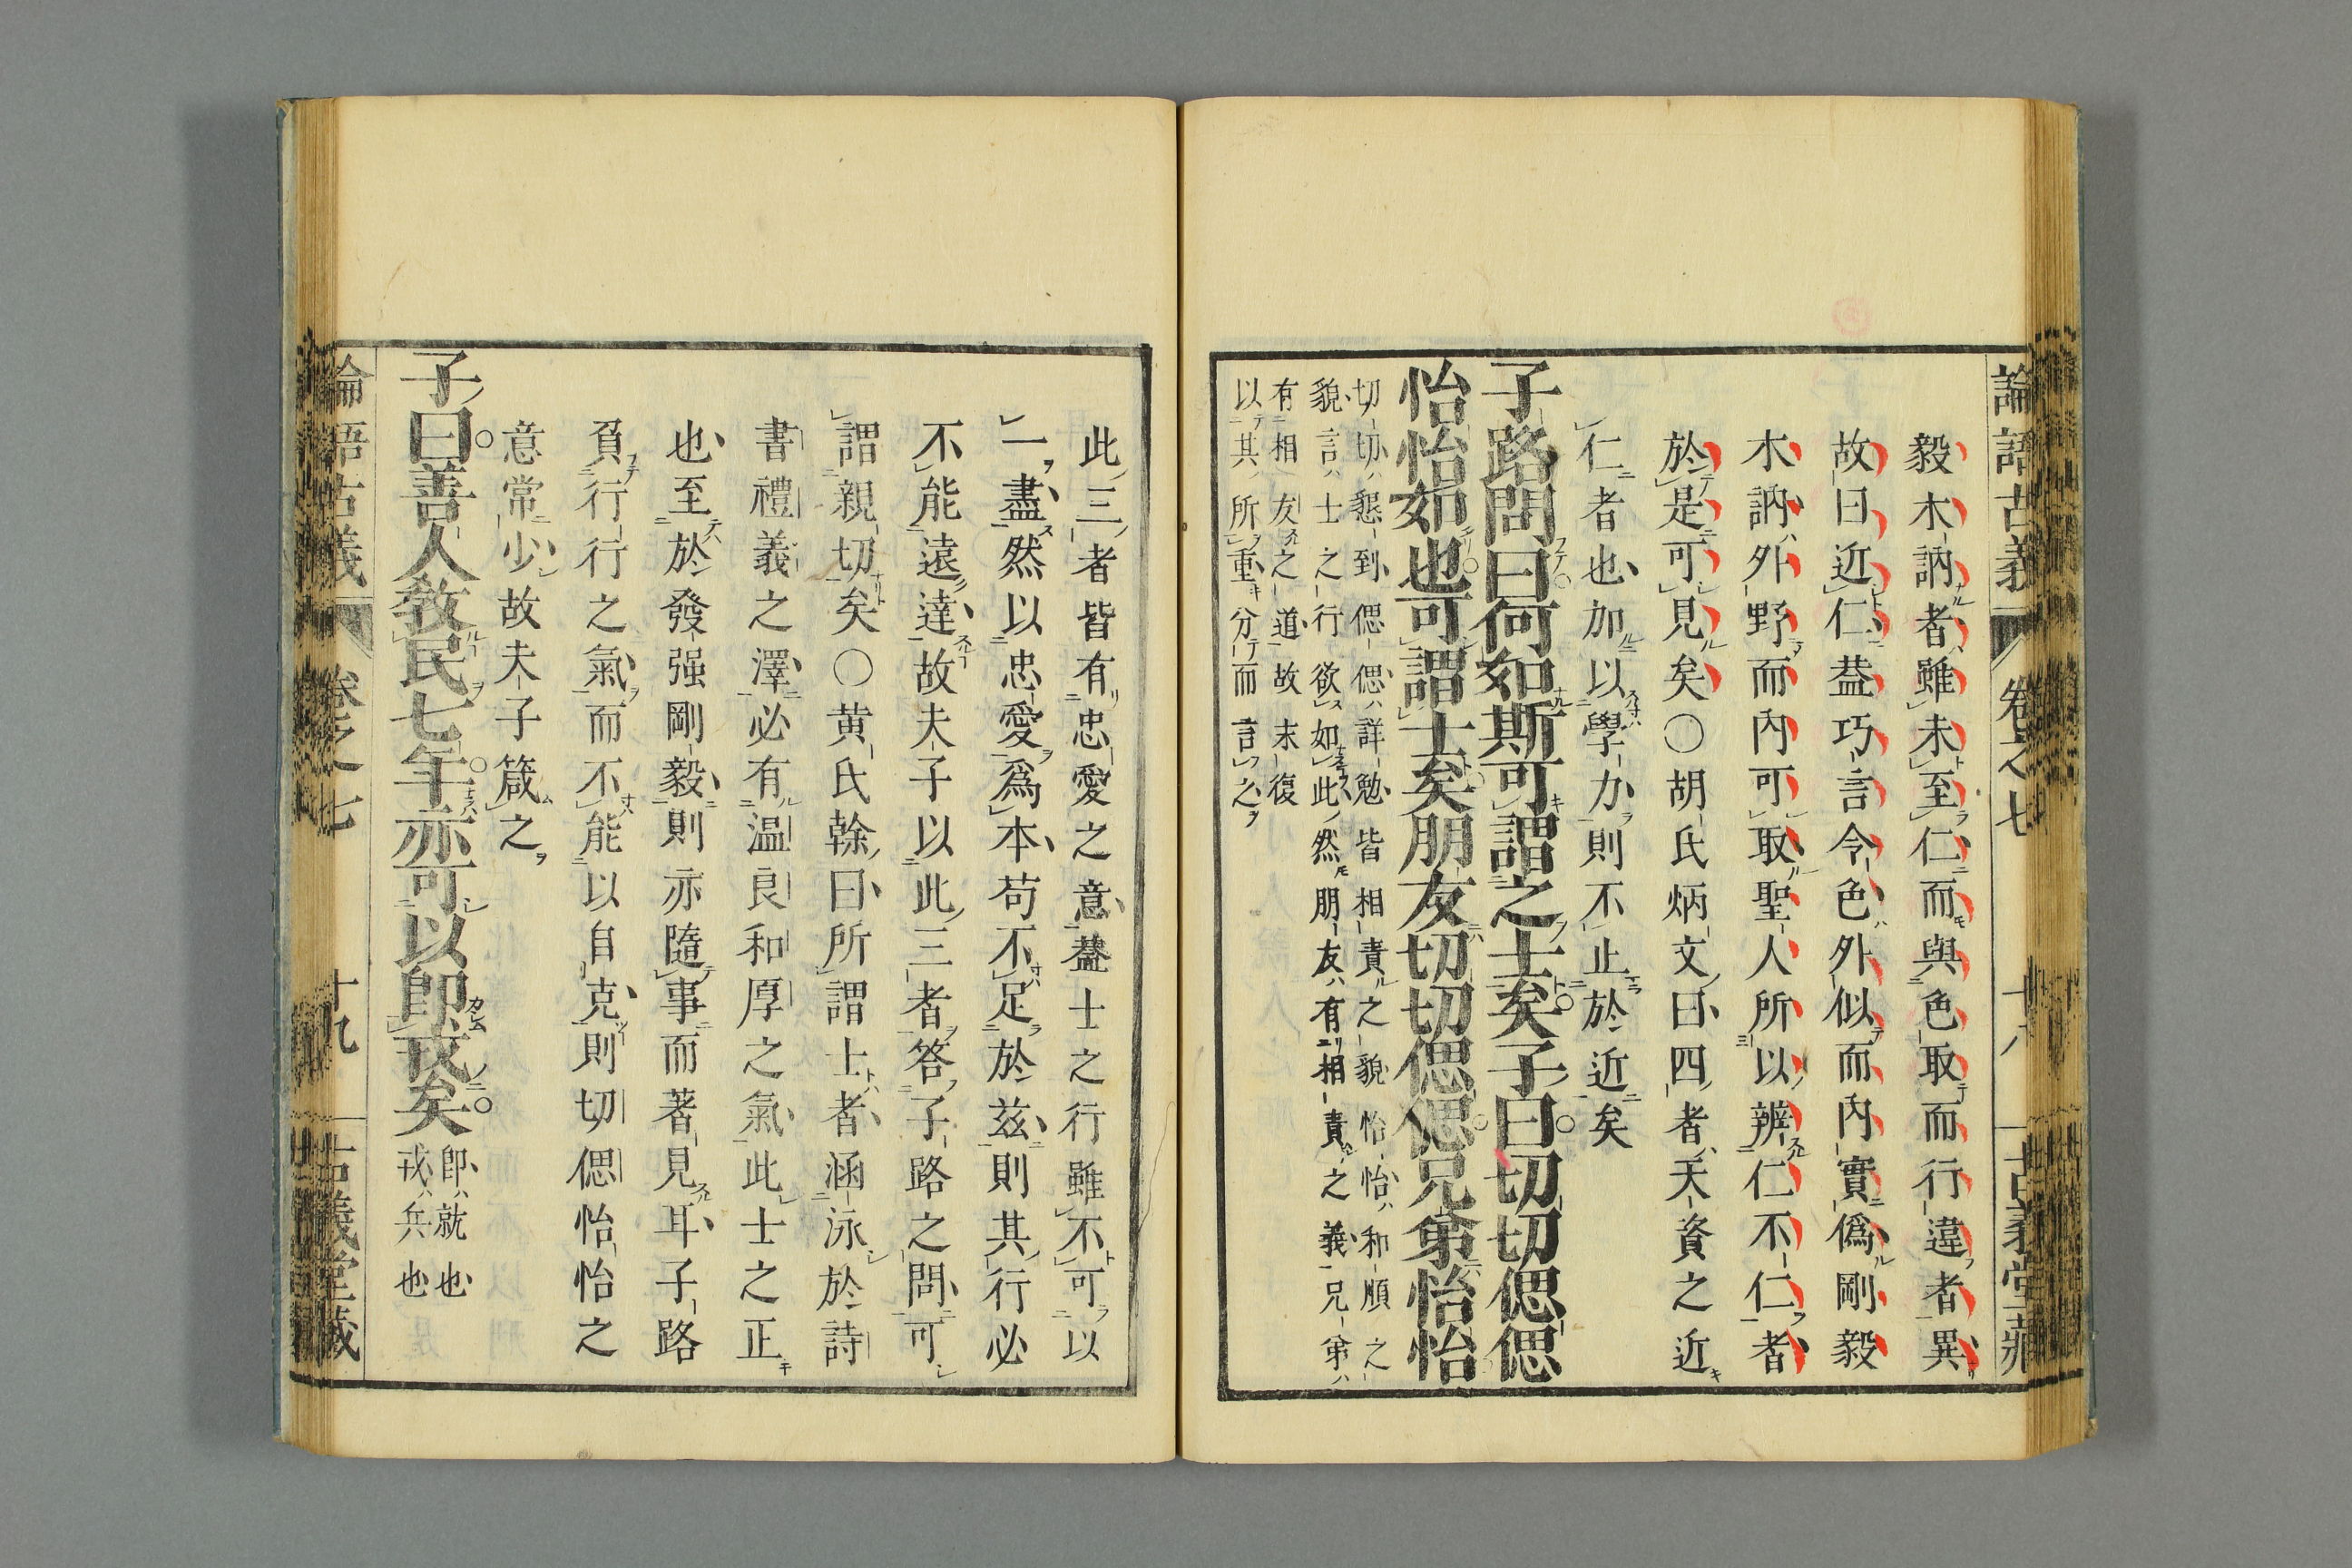 論語古義 卷之七 十八 古義堂藏
毅木訥者雖未至仁而與色取而行違者異
故曰近仁葢巧言令色外似而內實偽剛毅
木訥外野而內可取聖人所以辨仁不仁者
於是可見矣〇胡氏炳文曰四者天資之近
仁者也加以學力則不止於近矣
子路問曰何如斯可謂之士矣子曰切切偲偲
怡怡如也可謂士矣朋友切切偲偲兄弟怡怡
切切懇到偲偲詳勉皆相責之貌怡怡和順之
貌言士之行欲如此然朋友有相責之義兄弟
有相友之道故末復
以其所重分而言之
此三者皆有忠愛之意葢士之行雖不可以
一盡然以忠愛爲本苟不足於茲則其行必
不能遠達故夫子以此三者答子路之問可
謂親切矣〇黄氏榦曰所謂士者涵泳於詩
書禮義之澤必有温良和厚之氣此士之正
也至於發强剛毅則亦隨事而著見耳子路
負行行之氣而不能以自克則切偲怡怡之
意常少故夫子箴之
子曰善人敎民七年亦可以卽戎矣
卽就也
戎兵也
論語古義 卷之七 十九 古義堂藏